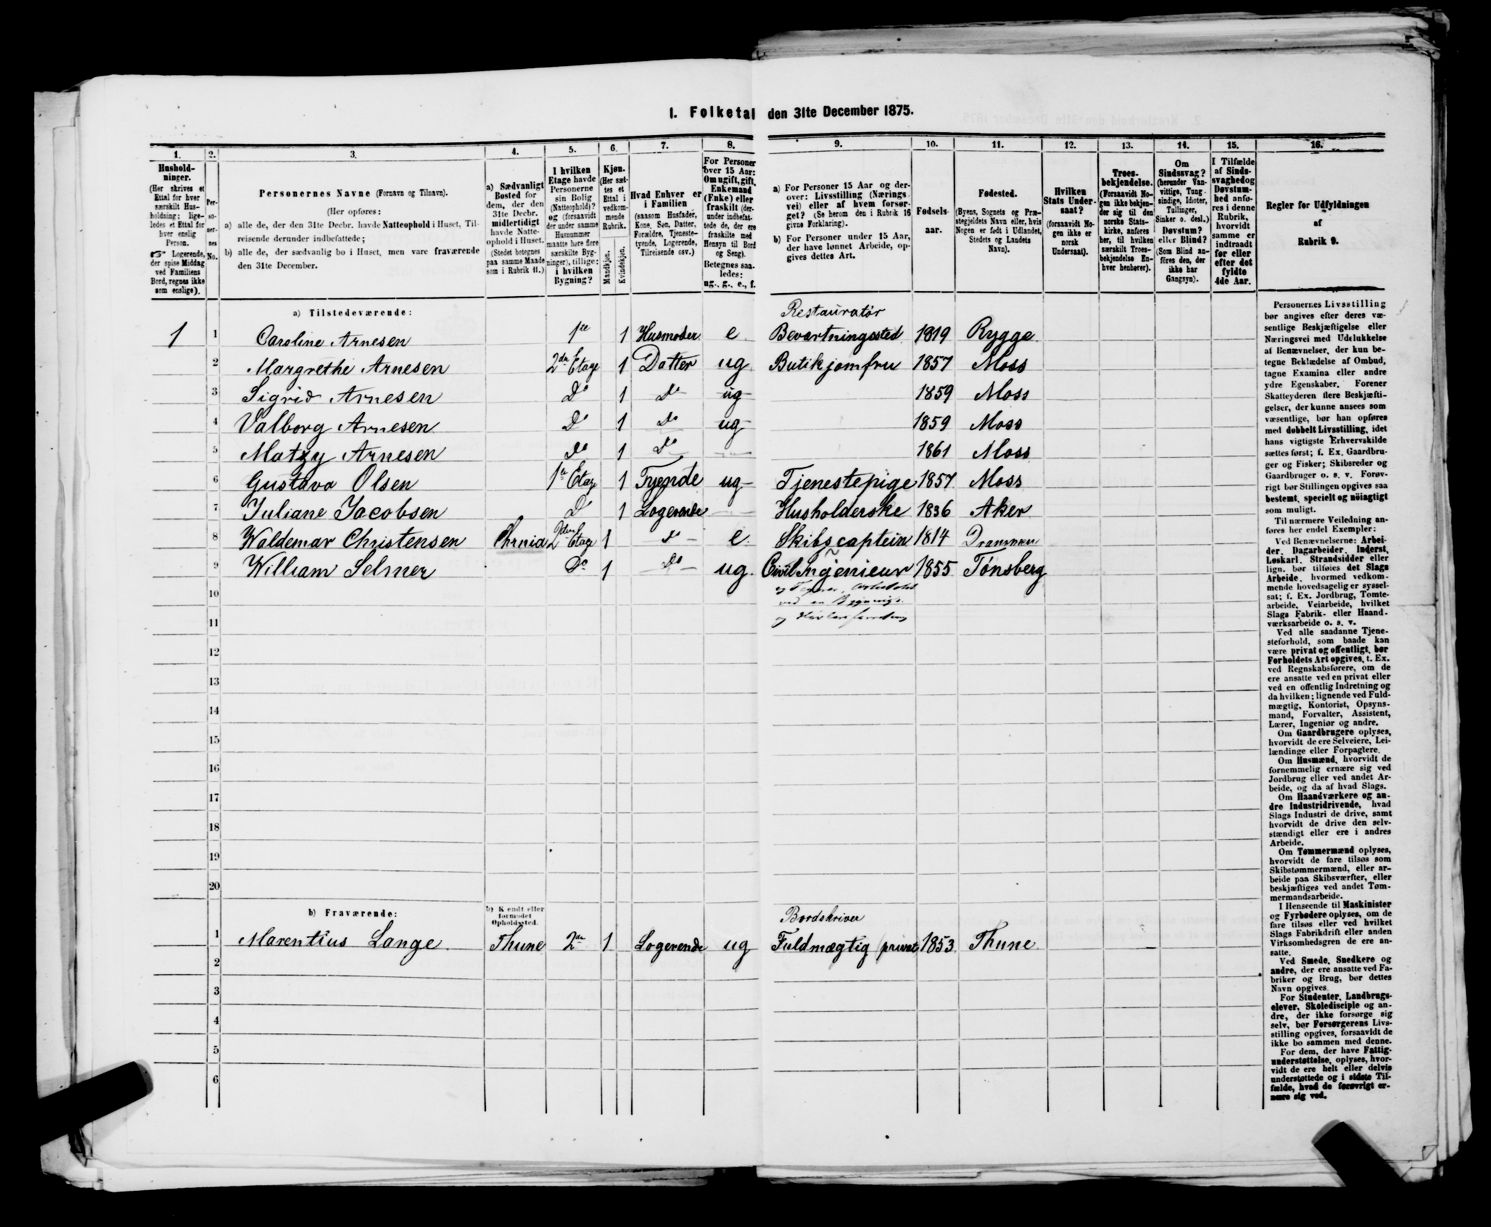 1. Folketal den 31te December 1875.
1. 2. 3. 4. 5. 6. 7. 8. 9. 10. 11. 12. 13. 14. 15. 16.
Hushold-
ninger.
(Her skrives et
Ettal for hver
særskilt Hus-
holdning; lige-
ledes et Ettal for
hver enslig
Person.
Logerende,
der spise Middag
ved Familiens
Bord, regnes ikke
som enslige).
Per-
so-
ner-
nes
No.
Personernes Navne (Fornavn og Tilnavn).
(Her opføres:
a) alle de, der den 31te Decbr. havde Natteophold i Huset, Til-
reisende derunder indbefattede;
b) alle de, der sædvanlig bo i Huset, men vare fraværende
den 31te December.
a) Sædvanligt
Bosted for
dem, der den
31te Decbr.
midlertidigt
havde Natte-
ophold i Huset.
(Stedet betegnes
paa samme Maade
som i Rubrik 11.)
I hvilken
Etage havde
Personerne
sin Bolig
(Natteophold)?
og (forsaavidt
der under samme
Husnummer
maatte høre flere
særskilte Byg-
ninger), tillige:
i hvilken
Bygning?
Kjøn.
(Her sæt-
tes et
Ettal i
vedkom-
mende
Rubrik.
Mandkjøn.
Kvindekjøn.
Hvad Enhver er
i Familien
(saasom Husfader,
Kone, Søn, Datter,
Forældre, Tjeneste-
tyende, Logerende,
Tilreisende osv.)
For Personer
over 15 Aar:
Om ugift, gift,
Enkemand
(Enke) eller
fraskilt (der-
under indbefat-
tede de, der ere
fraskilte med
Hensyn til Bord
og Seng).
Betegnes saa-
ledes:
ug., g., e., f.
a) For Personer 15 Aar og der-
over: Livsstilling (Nærings-
vei) eller af hvem forsør-
get? (Se herom den i Rubrik 16
givne Forklaring).
b) For Personer under 15 Aar,
der have lønnet Arbeide, op-
gives dettes Art.
Fødsels-
aar.
Fødested.
(Byens, Sognets og Præ-
stegjeldets Navn eller, hvis
Nogen er født i Udlandet,
Stedets og Landets
Navn).
Hvilken
Stats Under-
saat?
(forsaavidt No-
gen ikke er
norsk
Undersaat).
Troes-
bekjendelse.
(Forsaavidt No-
gen ikke bekjen-
der sig til den
norske Stats-
kirke, anføres
her, til hvilken
særskilt Troes-
bekjendelse En-
hver henhører).
Om
Sindssvag?
(herunder Van-
vittige, Tung-
sindige, Idioter,
Tullinger,
Sinker o. desl.)
Døvstum?
eller Blind?
(Som Blind an-
føres den, der
ikke har
Gangsyn).
I Tilfælde
af Sinds-
svaghed og
Døvstum-
hed anfø-
res i denne
Rubrik,
hvorvidt
samme er
indtraadt
før eller
efter det
fyldte
4de Aar.
Regler for Udfyldningen
af
Rubrik 9.
a) Tilstedeværende:
Restauratør
1 1 Caroline Arnesen 1ste 1 Husmoder e Bevertningssted 1819 Rygge
2 Margrethe Arnesen 2den Etage 1 Datter ug. Butikjomfru 1857 Moss
3 Sigrid Arnesen Do 1 do ug 1859 Moss
4 Valborg Arnesen Do 1 do ug 1859 Moss
5 Matzy Arnesen do 1 do 1861 Moss
6 Gustava Olsen 1ste Etage 1 Tyende ug Tjenestepige 1857 Moss
7 Juliane Jacobsen Do 1 Logerende Husholderske 1836 Aker
8 Waldemar Christensen Chrnia 2den Etage 1 do e. Skibscaptein 1814 Drammen
9 William Selmer Do 1 do ug. Civil Ingenieur 1855 Tønsberg
og
ved en Bygnings
og
10
11
12
13
14
15
16
17
18
19
20
b) Fraværende:
b) Kendt eller
formodet
Opholdssted.
Bordskriver
1 Marentius Lange Thune 2den 1 Logerende ug Fuldmægtig (privat) 1853 Thune
2
3
4
5
6
Personernes Livsstilling
bør angives efter deres væ-
sentlige Beskjæftigelse eller
Næringsvei med Udelukkelse
af Benævnelser, der kun be-
tegne Beklædelse af Ombud,
tagne Examina eller andre
ydre Egenskaber. Forener
Skatteyderen flere Beskjæfti-
gelser, der kunne ansees som
væsentlige, bør han opføres
med dobbelt Livsstilling, idet
hans vigtigste Erhvervskilde
sættes først; f. Ex. Gaardbru-
ger og Fisker; Skibsreder og
Gaardbruger o. s. v. Forøv-
rigt bør Stillingen opgives saa
bestemt, specielt og nøiagtigt
som muligt.
Til nærmere Veiledning an-
føres her endel Exempler:
Ved Benævnelserne: Arbei-
der, Dagarbeider, Inderst,
Løskarl, Strandsidder eller
lign. bør tilføies det Slags
Arbeide, hvormed vedkom-
mende hovedsagelig er syssel-
sat; f. Ex. Jordbrug, Tomte-
arbeide, Veiarbeide, hvilket
Slags Fabrik- eller Haand-
værksarbeide o. s. v.
Ved alle saadanne Tjene-
steforhold, som baade kan
være privat og offentligt, bør
Forholdets Art opgives, t. Ex.
ved Regnskabsførere, om de
ere ansatte ved en privat eller
ved en offentlig Indretning og
da hvilken; lignende ved Fuld-
mægtig, Kontorist, Opsyns-
mand, Forvalter, Assistent,
Lærer, Ingeniør og andre.
Om Gaardbrugere oplyses,
hvorvidt de ere Selveiere, Lei-
lændinge eller Forpagtere.
Om Husmænd, hvorvidt de
fornemmelig ernære sig ved
Jordbrug eller ved andet Ar-
beide, og da af hvad Slags.
Om Haandværkere og an-
dre Industridrivende, hvad
Slags Industri de drive, samt
hvorvidt de drive den selv-
stændigt eller ere i andres
Arbeide.
Om Tømmermænd oplyses,
hvorvidt de fare tilsøs som
Skibstømmermænd, eller ar-
beide paa Skibsværfter, eller
beskjæftiges ved andet Tøm-
mermandsarbeide.
I Henseende til Maskinister
og Fyrbødere oplyses, om de
fare tilsøs eller ved hvilket
Slags Fabrikdrift eller anden
Virksomhedsgren de ere an-
satte.
Ved Smede, Snedkere og
andre, der ere ansatte ved Fa-
briker og Brug, bør dettes
Navn opgives.
For Studenter, Landbrugs-
elever, Skoledisciple og an-
dre, der ikke forsørge sig
selv, bør Forsørgerens Livs-
stilling opgives, forsaavidt de
ikke bo sammen med denne.
For dem, der have Fattig-
understøttelse, oplyses, hvor-
vidt de ere helt eller delvis
understøttede og i sidste Til-
fælde, hvad de forøvrigt er-
nære sig ved.